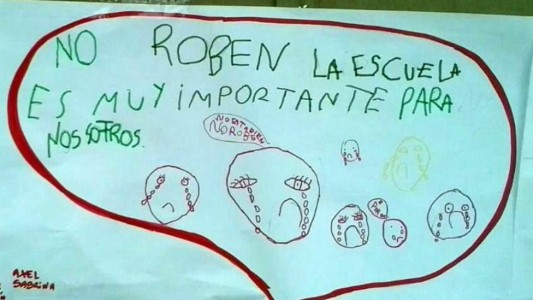 NO ROBEN LA ESCUELA
ES MUY IMPORTANTE PARA
NOSSOTROS.
AXEL
SABRINA